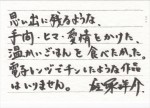 思い出に残るような、
手間・ヒマ・愛情をかけた
温かいごはんを食べたかった。
電子レンジでチンしたような作品
はいりません。